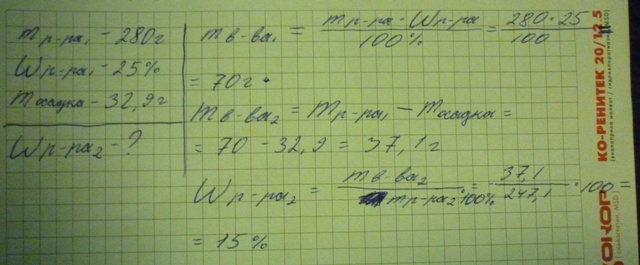 m р-ра₁ - 280г
W р-ра₁ - 25%
m осадка - 32,9г
W р-ра₂ - ?
m в-ва₁ = m р-ра · W р-ра / 100% = 280 · 25 / 100
= 70г.
m в-ва₂ = m р-ра₁ - m осадка =
= 70 - 32,9 = 37,1г
W р-ра₂ = m в-ва₂ / m р-ра₂ · 100% = 37,1 / 247,1 · 100 =
= 15%
КО-РЕНИТЕК 20/12.5